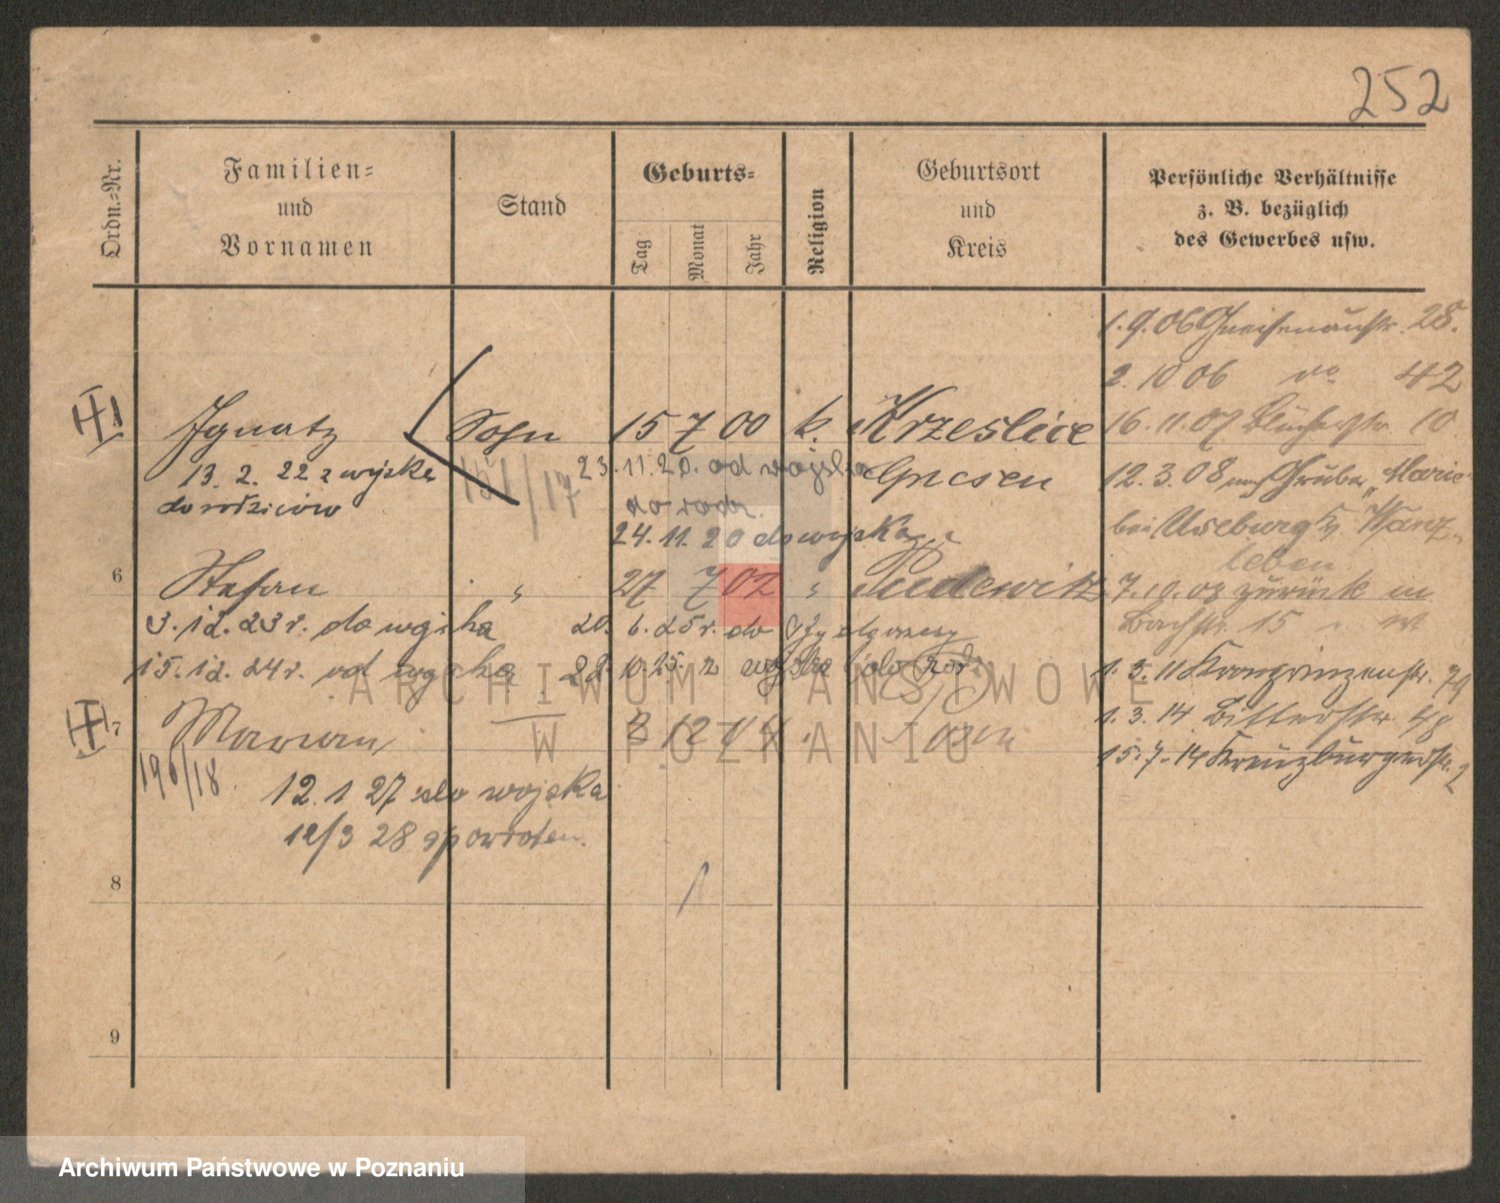 252
Ordn.-Nr.
Familien-
und
Vornamen
Stand
Geburts-
Tag
Monat
Jahr
Religion
Geburtsort
und
Kreis
Persönliche Verhältnisse
z. B. bezüglich
des Gewerbes usw.
1. 9. 06 Gneisenaustr. 28.
2. 10 06 do 42
Ignatz Sohn 15 7 00 k. Krzeslice
16. 11. 07 Blücherstr. 10
13. 2. 22 z wojska
151/17
23. 11. 20. od wojska
Gnesen
12. 3. 08 Gruber Marie
do rodziców
do rodz.
bei Useburg Wanz-
24. 11. 20 do wojska
leben
6 Stefan " 27 7 02 " Pudewitz
7. 10. 08 zurück in
3. 12. 23 r. do wojska
20. 6. 25 r. do
Bachstr. 15
15. 12. 24 r. od wojska
22. 10. 25. z wojska do rodz
1. 3. 11 Kronprinzenstr. 79
7 Marian 12 14 Posen
1. 3. 14 Bitterstr. 48
15. 7. 14 Kreuzburgerstr. 2
196/18
12. 1 27 do wojska
12/3 28 spowrotem.
8
9
ARCHIWUM PAŃSTWOWE
W POZNANIU
Archiwum Państwowe w Poznaniu